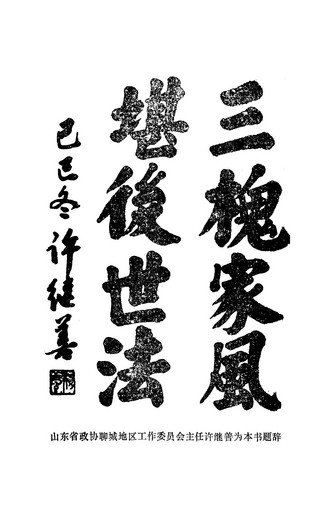 三槐家風
堪後世法
己巳冬 许继善
山东省政协聊城地区工作委员会主任许继善为本书题辞